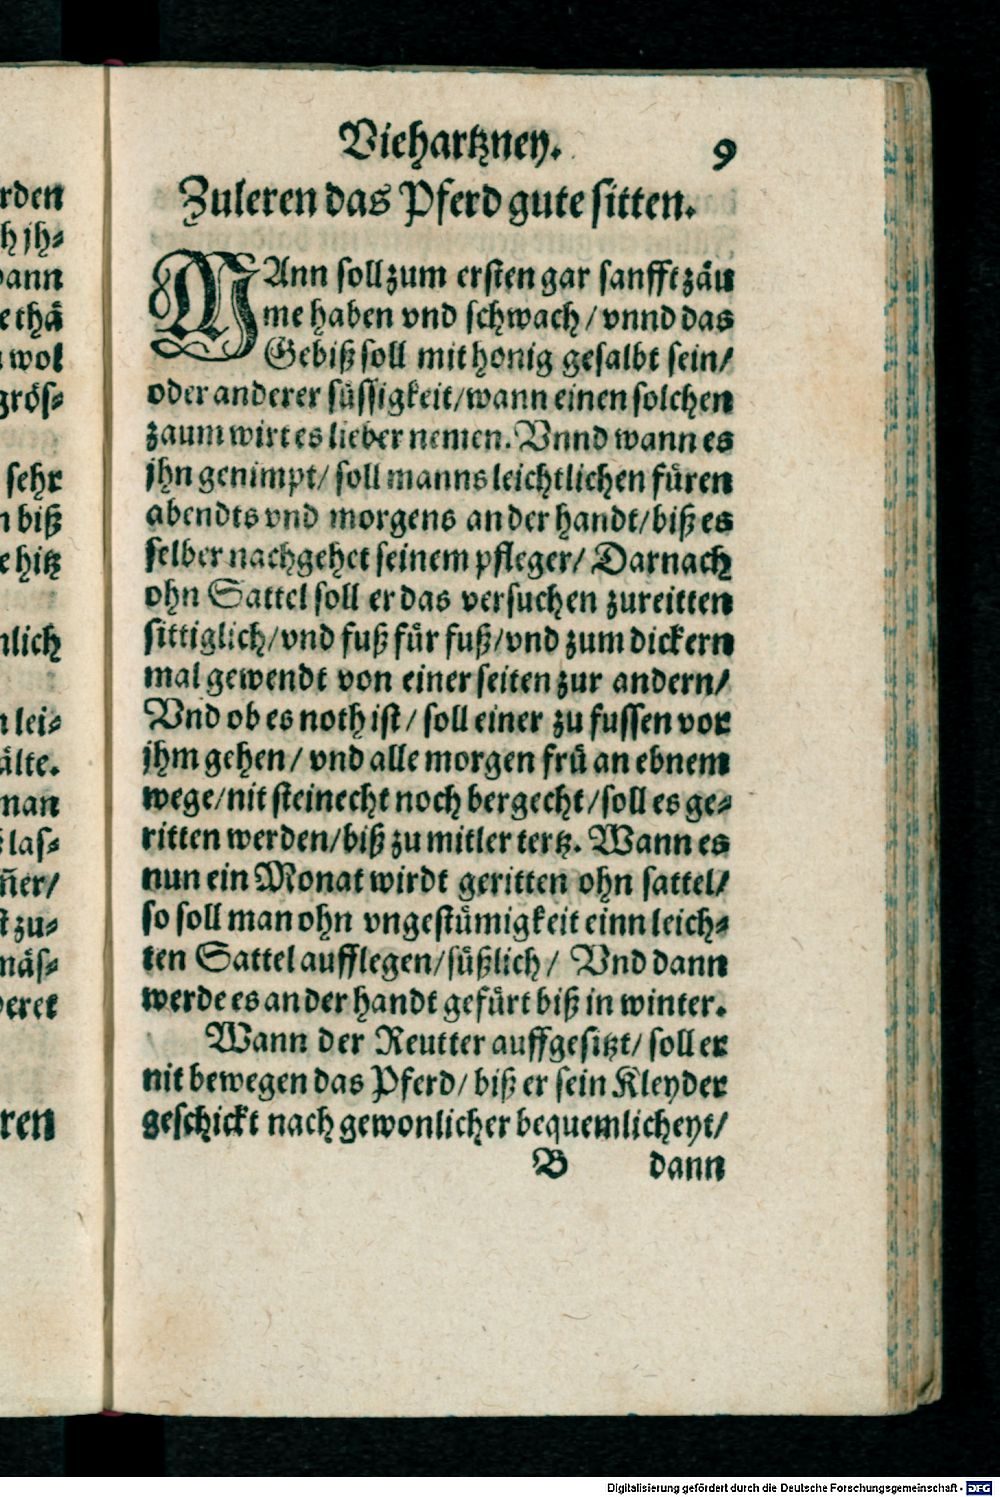 rden
h jh⸗
dann
e thã
wol
grös⸗
sehr
n biß
e hitz
nlich
n lei⸗
älte.
man
las⸗
ñer/
st zu⸗
mäs⸗
deret
ren
Viehartzney. 9
Zuleren das Pferd gute sitten.
MAnn soll zum ersten gar sanfft zäu
me haben vnd schwach / vnnd das
Gebiß soll mit honig gesalbt sein/
oder anderer süssigkeit/wann einen solchen
zaum wirt es lieber nemen. Vnnd wann es
jhn genimpt/ soll manns leichtlichen füren
abendts vnd morgens an der handt/biß es
selber nachgehet seinem pfleger/ Darnach
ohn Sattel soll er das versuchen zureitten
sittiglich/vnd fuß für fuß/vnd zum dickern
mal gewendt von einer seiten zur andern/
Vnd ob es noth ist / soll einer zu fussen vor
jhm gehen/ vnd alle morgen frü an ebnem
wege/nit steinecht noch bergecht/soll es ge⸗
ritten werden/biß zu mitler tertz. Wann es
nun ein Monat wirdt geritten ohn sattel/
so soll man ohn vngestümigkeit einn leich⸗
ten Sattel aufflegen/süßlich / Vnd dann
werde es an der handt gefürt biß in winter.
Wann der Reutter auffgesitzt/ soll er
nit bewegen das Pferd/ biß er sein Kleyder
geschickt nach gewonlicher bequemlicheyt/
B dann
Digitalisierung gefördert durch die Deutsche Forschungsgemeinschaft - DFG